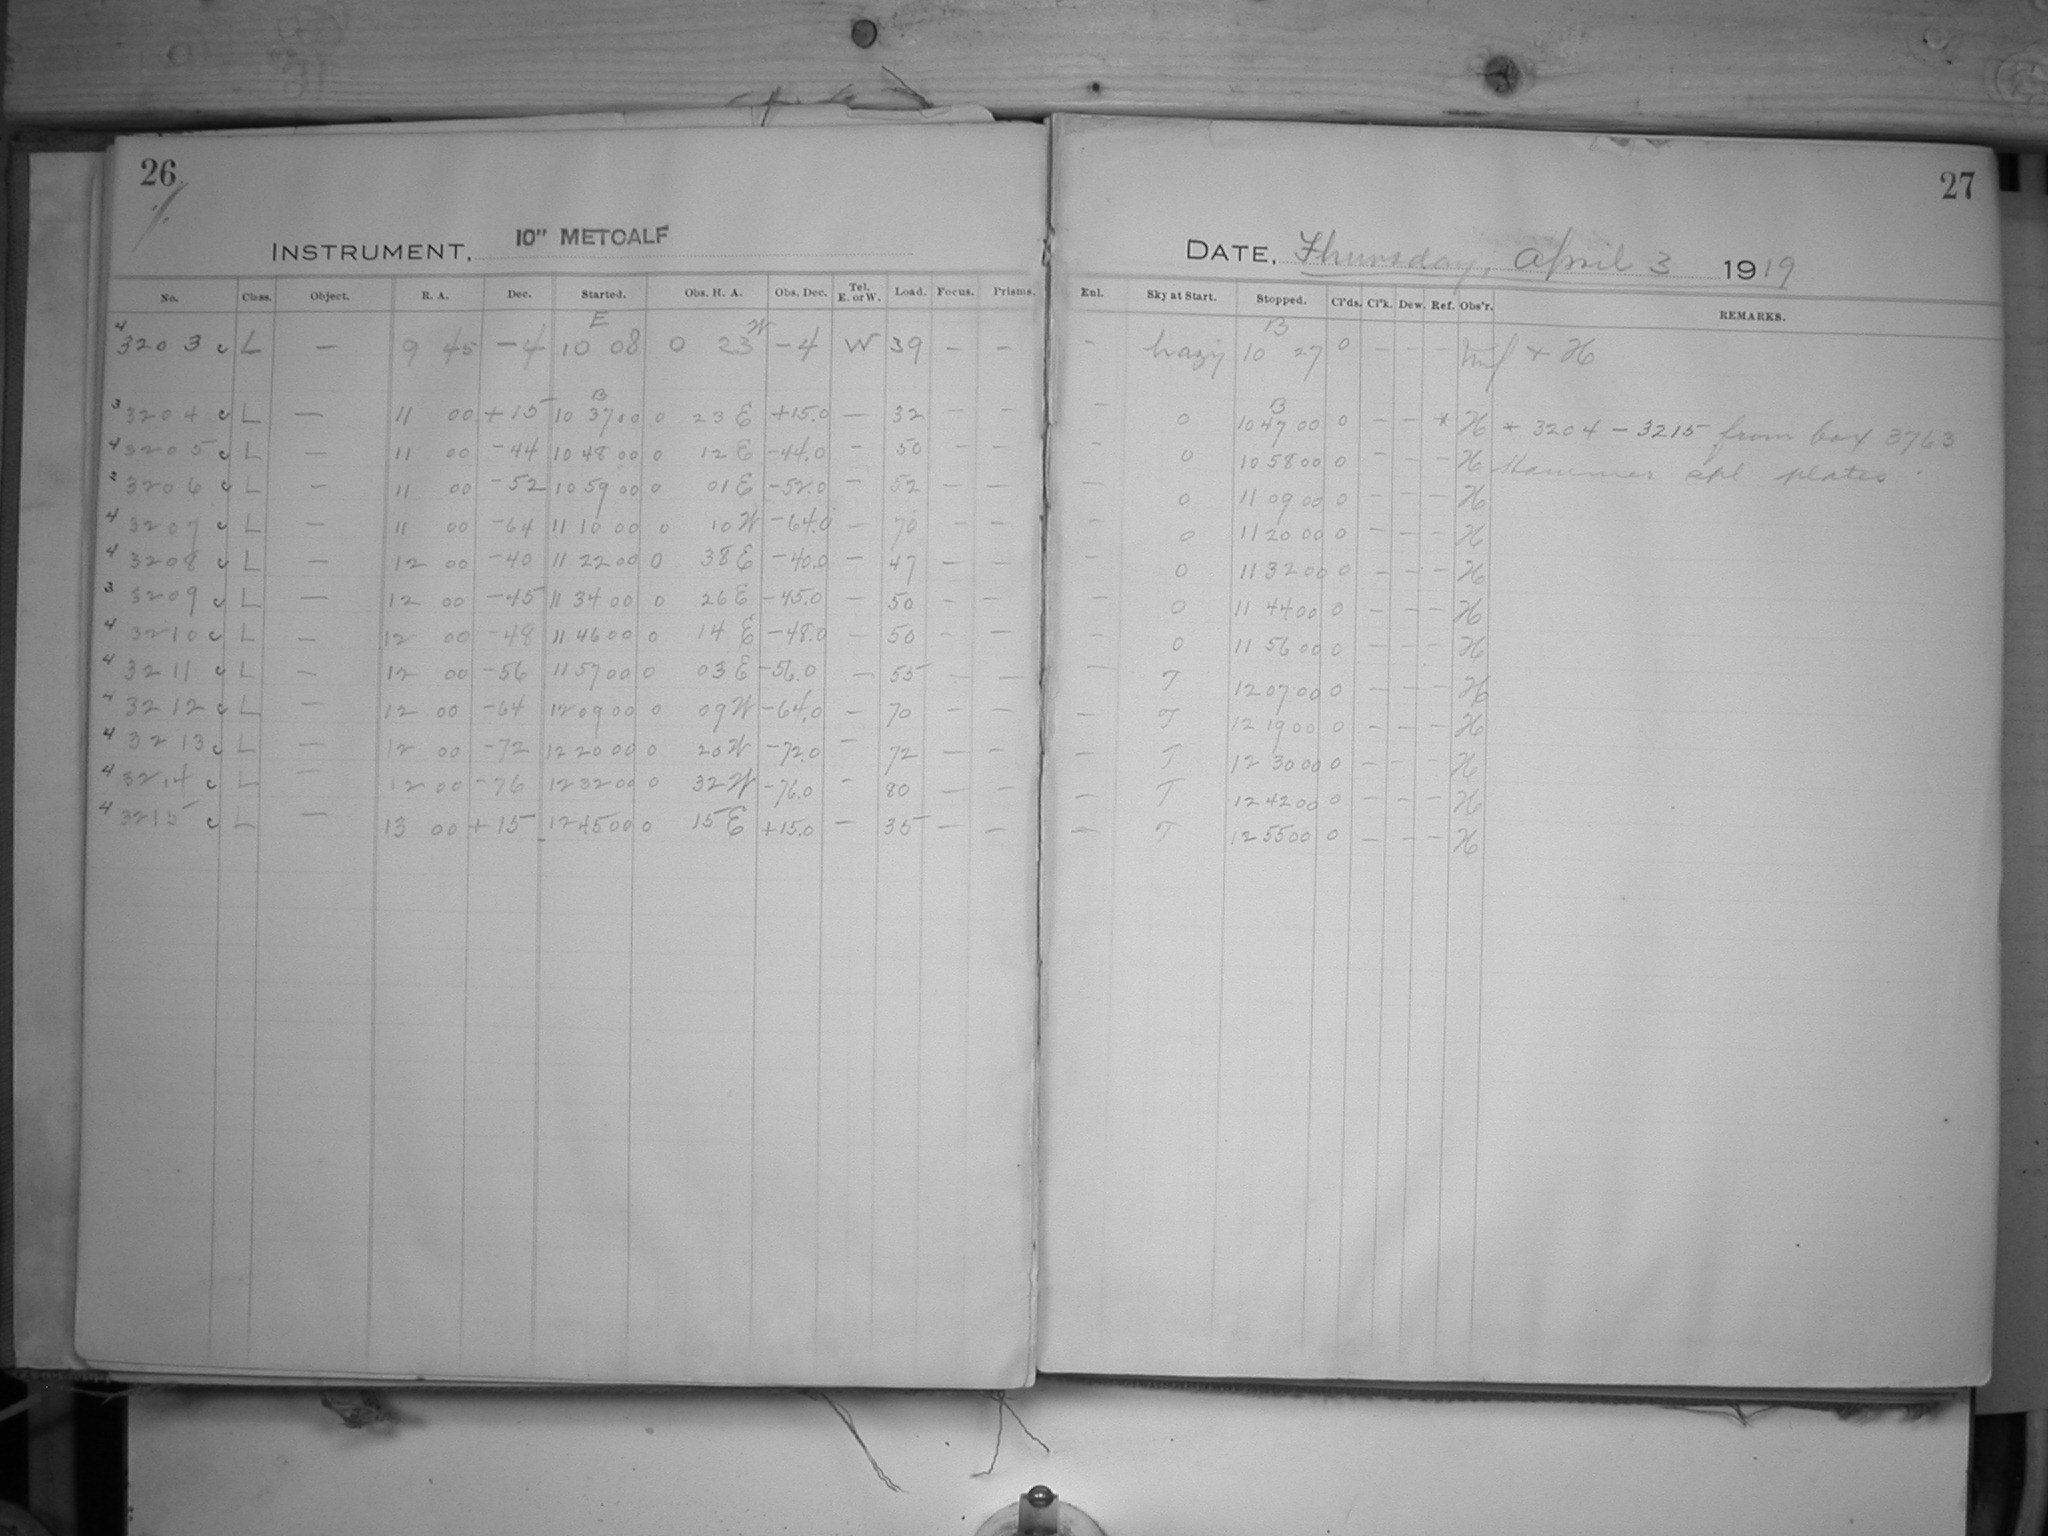 26
27
INSTRUMENT, 10" METCALF
DATE, Thursday, April 3 1919
No. Class. Object. R. A. Dec. Started. Obs. H. A. Obs. Dec. Tel. E. or W. Load. Focus. Prisms. Enl. Sky at Start. Stopped. Cl'ds. Cl'k. Dew. Ref. Obs'r. REMARKS.
E W B
4 3203 c L — 9 45 -4 10 08 0 23 -4 W 39 — — - hazy 10 27 0 - - - + H
B B
3 3204 c L — 11 00 +15 10 37 00 0 23 E +15.0 — 32 - - — 0 10 47 00 0 - - * H * 3204 - 3215 from box 3763
4 3205 c L — 11 00 -44 10 48 00 0 12 E -44.0 - 50 - - - 0 10 58 00 0 - - - H Hammer spl plates.
3 3206 c L — 11 00 -52 10 59 00 0 01 E -52.0 - 52 - - — 0 11 09 00 0 - - - H
4 3207 c L — 11 00 -64 11 10 00 0 10 W -64.0 — 70 - - - 0 11 20 00 0 - - - H
4 3208 c L — 12 00 -40 11 22 00 0 38 E -40.0 — 47 - - - 0 11 32 00 0 - - - H
3 3209 c L — 12 00 -45 11 34 00 0 26 E -45.0 — 50 - - — 0 11 44 00 0 - - - H
4 3210 c L — 12 00 -48 11 46 00 0 14 E -48.0 — 50 - - - 0 11 56 00 0 - - - H
4 3211 c L — 12 00 -56 11 57 00 0 03 E -56.0 — 55 - - — T 12 07 00 0 - - - H
4 3212 c L — 12 00 -64 12 09 00 0 09 W -64.0 — 70 - - — T 12 19 00 0 - - - H
4 3213 c L — 12 00 -72 12 20 00 0 20 W -72.0 - 72 - - — T 12 30 00 0 - - - H
4 3214 c L — 12 00 -76 12 32 00 0 32 W -76.0 - 80 - - — T 12 42 00 0 - - - H
4 3215 c L — 13 00 +15 12 45 00 0 15 E +15.0 - 35 - - — T 12 55 00 0 - - - H